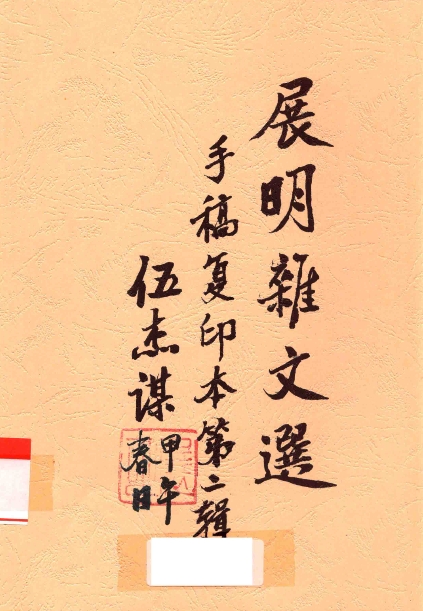 展明雜文選
手稿复印本第二輯
伍杰謀
甲午
春日